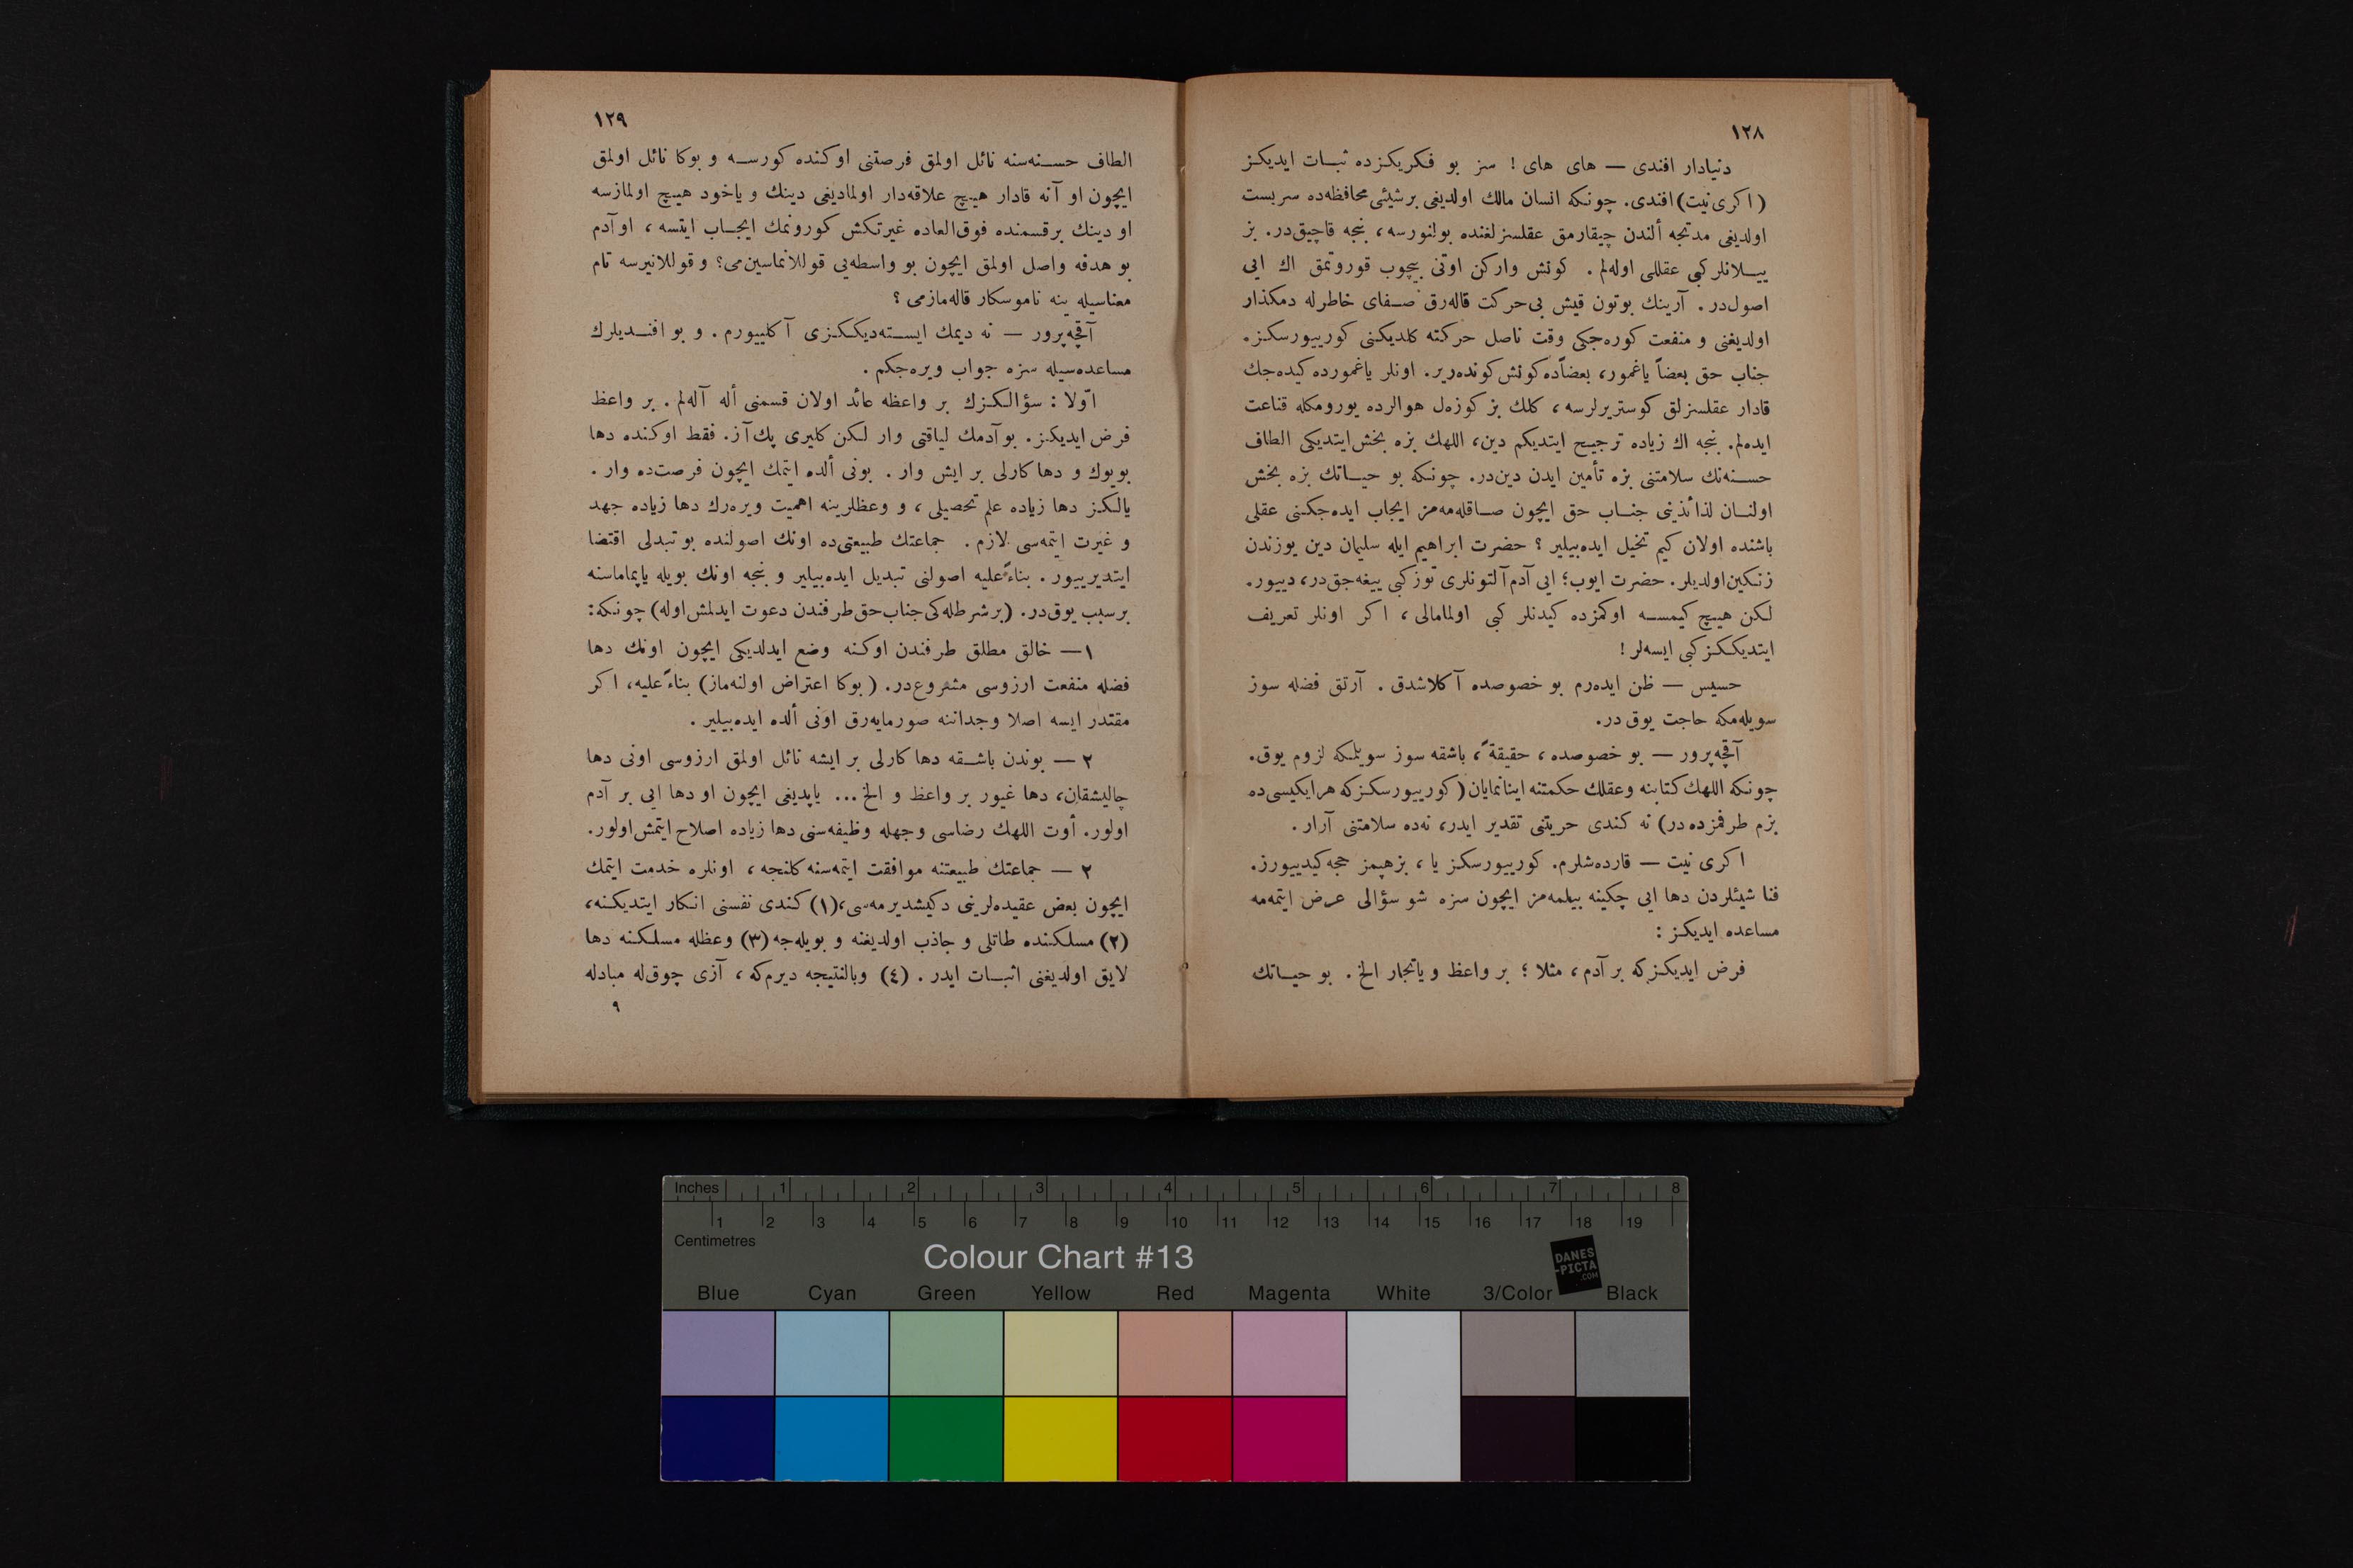 ١٢٨
دنیادار افندی — های های ! سز بو فکریکزده ثبات ایدیکز
(اکری نیت) افندی. چونکه انسان مالك اولدیغی برشیئی محافظه‌ده سربست
اولدیغی مدتجه ألندن چیقارمق عقلسزلغنده بولنورسه، بنجه قاچیق‌در. بز
ییلانلر کبی عقللی اوله‌لم . کونش وارکن اوتی بیچوب قوروتمق اك ایی
اصول‌در . آرینك بوتون قیش بی‌حرکت قاله‌رق صفای خاطرله دمکذار
اولدیغنی و منفعت کوره‌جکی وقت ناصل حرکته کلدیکنی کورییورسکز.
جناب حق بعضاً یاغمور، بعضاًده کونش کونده‌ریر. اونلر یاغمورده کیده‌جك
قادار عقلسزلق کوستریرلرسه ، کلك بز کوزه‌ل هوالرده یورومکله قناعت
ایده‌لم. بنجه اك زیاده ترجیح ایتدیکم دین، اللهك بزه بخش‌ایتدیکی الطاف
حسنه‌نك سلامتنی بزه تأمین ایدن دین‌در. چونکه بو حیاتك بزه بخش
اولنان لذائذینی جناب حق ایچون صاقله‌مه‌مز ایجاب ایده‌جکنی عقلی
باشنده اولان کیم تخیل ایده‌بیلیر ؟ حضرت ابراهیم ایله سلیمان دین یوزندن
زنکین‌اولدیلر. حضرت ایوب؛ ایی آدم آلتونلری توز کبی ییغه‌جق‌در، دییور.
لکن هیچ کیمسه اوکمزده کیدنلر کبی اولمامالی ، اکر اونلر تعریف
ایتدیککز کبی ایسه‌لر !
حسیس — ظن ایده‌رم بو خصوصده آکلاشدق . آرتق فضله سوز
سویله‌مکه حاجت یوق در.
آقچه‌پرور — بو خصوصده ، حقیقةً ، باشقه سوز سویلمکه لزوم یوق.
چونکه اللهك کتابنه وعقلك حکمتنه اینانمایان (کورییورسکزکه هرایکیسی‌ده
بزم طرفمزده‌در) نه کندی حریتنی تقدیر ایدر، نه‌ده سلامتنی آرار .
اکری نیت — قارده‌شلرم. کورییورسکز یا ، بزهپمز حجه کیدییورز.
فنا شیئلردن دها ایی چکینه بیلمه‌مز ایچون سزه شو سؤالی عرض ایتمه‌مه
مساعده ایدیکز :
فرض ایدیکزکه بر آدم ، مثلا ؛ بر واعظ ویاتجار الخ . بو حیاتك
١٢٩
الطاف حسنه‌سنه نائل اولمق فرصتنی اوکنده کورسه و بوکا نائل اولمق
ایچون او آنه قادار هیچ علاقه‌دار اولمادیغی دینك و یاخود هیچ اولمازسه
او دینك برقسمنده فوق‌العاده غیرتکش کورونمك ایجاب ایتسه ، اوآدم
بو هدفه واصل اولمق ایچون بو واسطه‌یی قوللانماسین‌می؟ و قوللانیرسه تام
معناسیله ینه ناموسکار قاله‌مازمی ؟
آقچه‌پرور — نه دیمك ایسته‌دیککزی آکلییورم . و بو افندیلرك
مساعده‌سیله سزه جواب ویره‌جکم .
اوّلا : سؤالکزك بر واعظه عائد اولان قسمنی أله آله‌لم . بر واعظ
فرض ایدیکز. بوآدمك لیاقتی وار لکن کلیری پك‌آز. فقط اوکنده دها
بویوك و دها کارلی بر ایش وار . بونی ألده ایتمك ایچون فرصت‌ده وار .
یالکز دها زیاده علم تحصیلی ، و وعظلرینه اهمیت ویره‌رك دها زیاده جهد
و غیرت ایتمه‌سی لازم . جماعتك طبیعتی‌ده اونك اصولنده بو تبدلی اقتضا
ایتدیرییور . بناءً‌علیه اصولنی تبدیل ایده‌بیلیر و بنجه اونك بویله یاپماماسنه
برسبب یوق‌در. (برشرطله‌کی جناب‌حق طرفندن دعوت ایدلمش‌اوله) چونکه:
١— خالق مطلق طرفندن اوکنه وضع ایدلدیکی ایچون اونك دها
فضله منفعت ارزوسی مشروع‌در. (بوکا اعتراض اولنه‌ماز) بناءً‌علیه، اکر
مقتدر ایسه اصلا وجداننه صورمایه‌رق اونی ألده ایده‌بیلیر .
٢ — بوندن باشقه دها کارلی بر ایشه نائل اولمق ارزوسی اونی دها
چالیشقان، دها غیور بر واعظ و الخ ... یاپدیغی ایچون او دها ایی بر آدم
اولور. أوت اللهك رضاسی وجهله وظیفه‌سنی دها زیاده اصلاح ایتمش‌اولور.
٢ — جماعتك طبیعتنه موافقت ایتمه‌سنه کلنجه ، اونلره خدمت ایتمك
ایچون بعض عقیده‌لرینی دکیشدیرمه‌سی،(١) کندی نفسنی انکار ایتدیکنه،
(٢) مسلکنده طاتلی و جاذب اولدیغنه و بویله‌جه (٣) وعظله مسلکنه دها
لایق اولدیغنی اثبات ایدر . (٤) وبالنتیجه دیرم‌که ، آزی چوق‌له مبادله
٩
Inches 1 2 3 4 5 6 7 8
1 2 3 4 5 6 7 8 9 10 11 12 13 14 15 16 17 18 19
Centimetres
Colour Chart #13
DANES
-PICTA
.COM
Blue Cyan Green Yellow Red Magenta White 3/Color Black